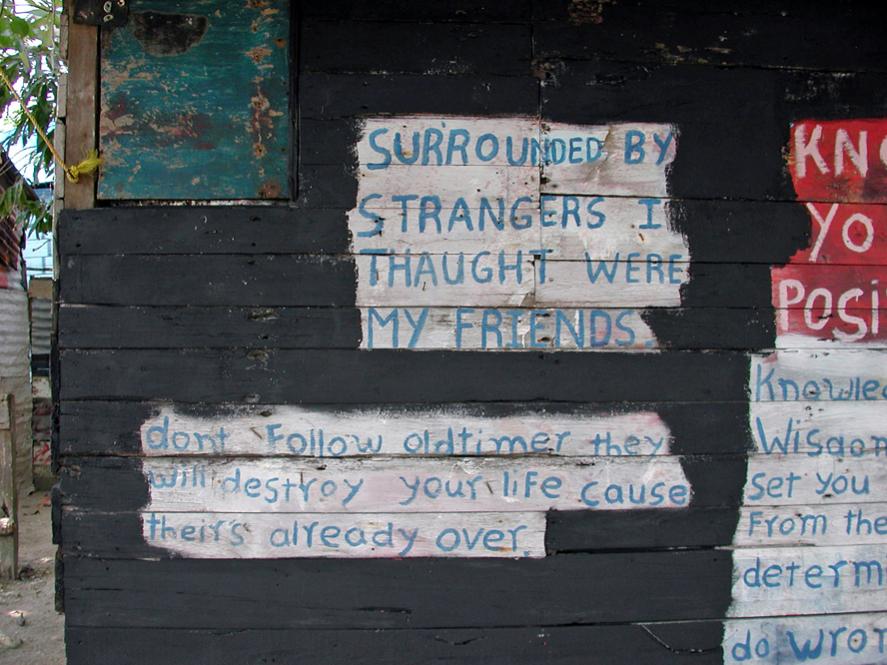 SURROUNDED BY
STRANGERS I
THAUGHT WERE
MY FRIENDS.
dont Follow oldtimer they
will destroy your life cause
their's already over.
KNO
YO
POSI
Knowled
Wisdom
set you
From the
determi
do wron